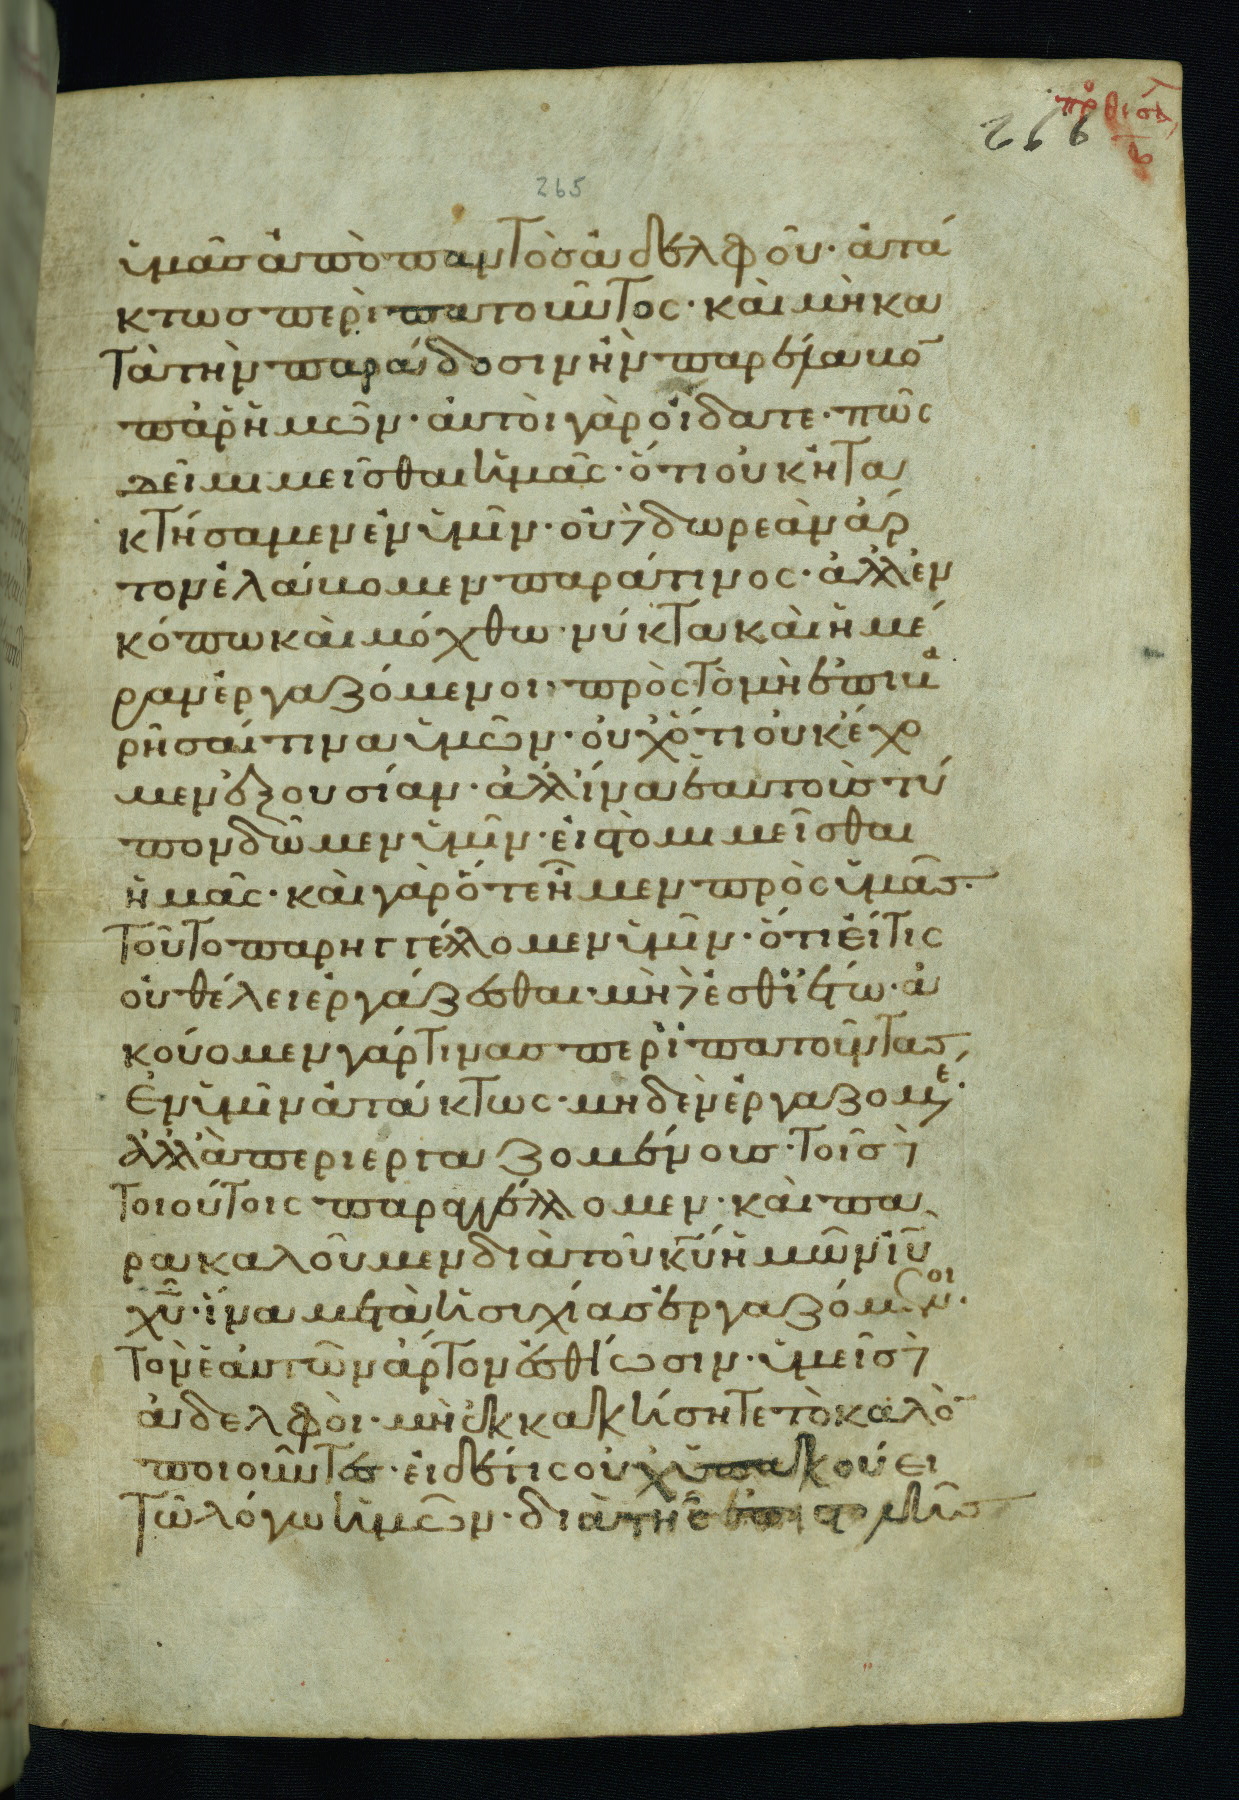 πρὸ θεσσα
266
β
265
ὑμᾶς ἀπὸ παντὸς ἀδελφοῦ· ἀτά
κτως περιπατοῦντος· καὶ μὴ κα
τὰ τὴν παράδοσιν ἣν παρέλαβον
παρ' ἡμῶν· αὐτοὶ γὰρ οἴδατε· πῶς
δεῖ μιμεῖσθαι ἡμᾶς· ὅτι οὐκ ἠτα
κτήσαμεν ἐν ὑμῖν· οὐδὲ δωρεὰν ἄρ
τον ἐλάβομεν παρά τινος· ἀλλ' ἐν
κόπω καὶ μόχθω νύκτα καὶ ἡμέ
ραν ἐργαζόμενοι· πρὸς τὸ μὴ ἐπιβα
ρῆσαί τινα ὑμῶν· οὐχ ὅτι οὐκ ἔχο
μεν ἐξουσίαν· ἀλλ' ἵνα ἑαυτοὺς τύ
πον δῶμεν ὑμῖν· εἰς τὸ μιμεῖσθαι
ἡμᾶς· καὶ γὰρ ὅτε ἦμεν πρὸς ὑμᾶς·
τοῦτο παρηγγέλλομεν ὑμῖν· ὅτι εἴ τις
οὐ θέλει ἐργάζεσθαι· μὴ δὲ ἐσθιέτω· ἀ
κούομεν γάρ τινας περιπατοῦντας
ἐν ὑμῖν ἀτάκτως· μηδὲν ἐργαζομέ·
ἀλλὰ περιεργαζομένους· τοῖς δὲ
τοιούτοις παραγγέλλομεν· καὶ πα
ρακαλοῦμεν διὰ τοῦ κυ ἡμῶν ιυ
χυ· ἵνα μετὰ ἡσυχίας ἐργαζόμενοι·
τὸν ἑαυτῶν ἄρτον ἐσθίωσιν· ὑμεῖς δὲ
ἀδελφοὶ· μὴ ἐκκακήσητε τὸ καλὸ
ποιοῦντες· εἰ δέ τις οὐχ ὑπακούει
τῶ λόγω ἡμῶν· διὰ τῆς ἐπιστολῆς